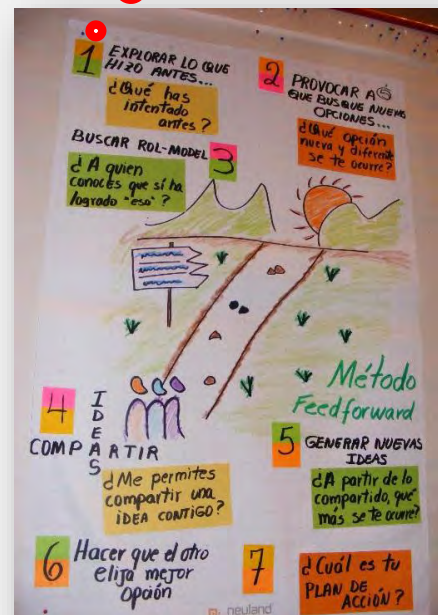 1 EXPLORAR LO QUE
HIZO ANTES...
¿Qué has
intentado
antes?
2 PROVOCAR A Ⓢ
QUE BUSQUE NUEVAS
OPCIONES...
¿Qué opción
nueva y diferente
se te ocurre?
BUSCAR ROL-MODEL 3
¿A quien
conoces que sí ha
logrado "eso"?
Método
Feedforward
4 IDEAS
COMPARTIR
¿Me permites
compartir una
IDEA CONTIGO?
5 GENERAR NUEVAS
IDEAS
¿A partir de lo
compartido, qué
más se te ocurre?
6 Hacer que el otro
elija mejor
opción
7 ¿Cuál es tu
PLAN DE
ACCIÓN?
neuland